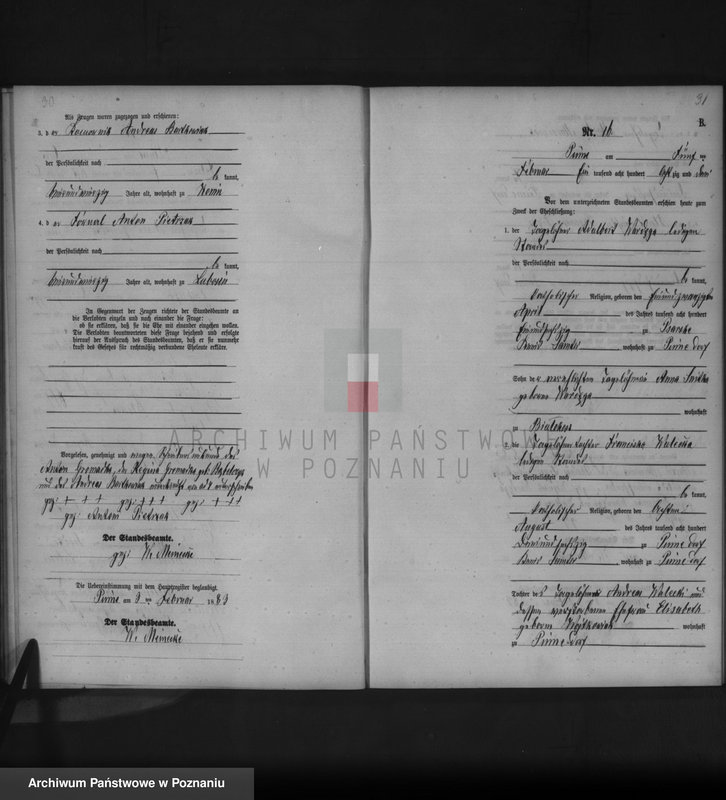 30
Als Zeugen waren zugezogen und erschienen:
3. d er Komornik Andreas Bartkowiak
der Persönlichkeit nach
be kannt,
Jahre alt, wohnhaft zu
4. d er Fornal Anton Pietrzak
der Persönlichkeit nach
be kannt,
Jahre alt, wohnhaft zu Lubosin
In Gegenwart der Zeugen richtete der Standesbeamte an
die Verlobten einzeln und nach einander die Frage:
ob sie erklären, daß sie die Ehe mit einander eingehen wollen.
Die Verlobten beantworteten diese Frage bejahend und erfolgte
hierauf der Ausspruch des Standesbeamten, daß er sie nunmehr
kraft des Gesetzes für rechtmäßig verbundene Eheleute erkläre.
Vorgelesen, genehmigt und wegen des
Anton Gromadka, der Regina Gromadka geb.
und des Andreas Bartkowiak
gez: + + + gez: + + + gez: + + +
gez: Antoni Pietrzak
Der Standesbeamte.
gez: W. Meinecke
Die Uebereinstimmung mit dem Hauptregister beglaubigt.
Pinne am 3 ten Februar 1883
Der Standesbeamte.
W. Meinecke
31
B.
Nr. 16
Pinne am Fünf ten
Februar Ein tausend acht hundert acht zig und drei
Vor dem unterzeichneten Standesbeamten erschien heute zum
Zweck der Eheschließung:
1. der Tagelöhner Adalbert ledigen
Standes
der Persönlichkeit nach
be kannt,
katholischer Religion, geboren den
April des Jahres tausend acht hundert
zu
Kreis Samter, wohnhaft zu Pinne Dorf
Sohn der verehelichten Tagelöhnerin Anna
geborene
wohnhaft
zu
2. die Tagelöhner Tochter Franciska Walecka
ledigen Standes
der Persönlichkeit nach
be kannt,
katholischer Religion, geboren den Achten
August des Jahres tausend acht hundert
zu Pinne Dorf
Kreis Samter, wohnhaft zu Pinne Dorf
Tochter des Tagelöhners Andreas Walecki und
dessen verstorbenen Ehefrau Elisabeth
geborene wohnhaft
zu Pinne Dorf
ARCHIWUM PAŃSTWOWE
W POZNANIU
Archiwum Państwowe w Poznaniu